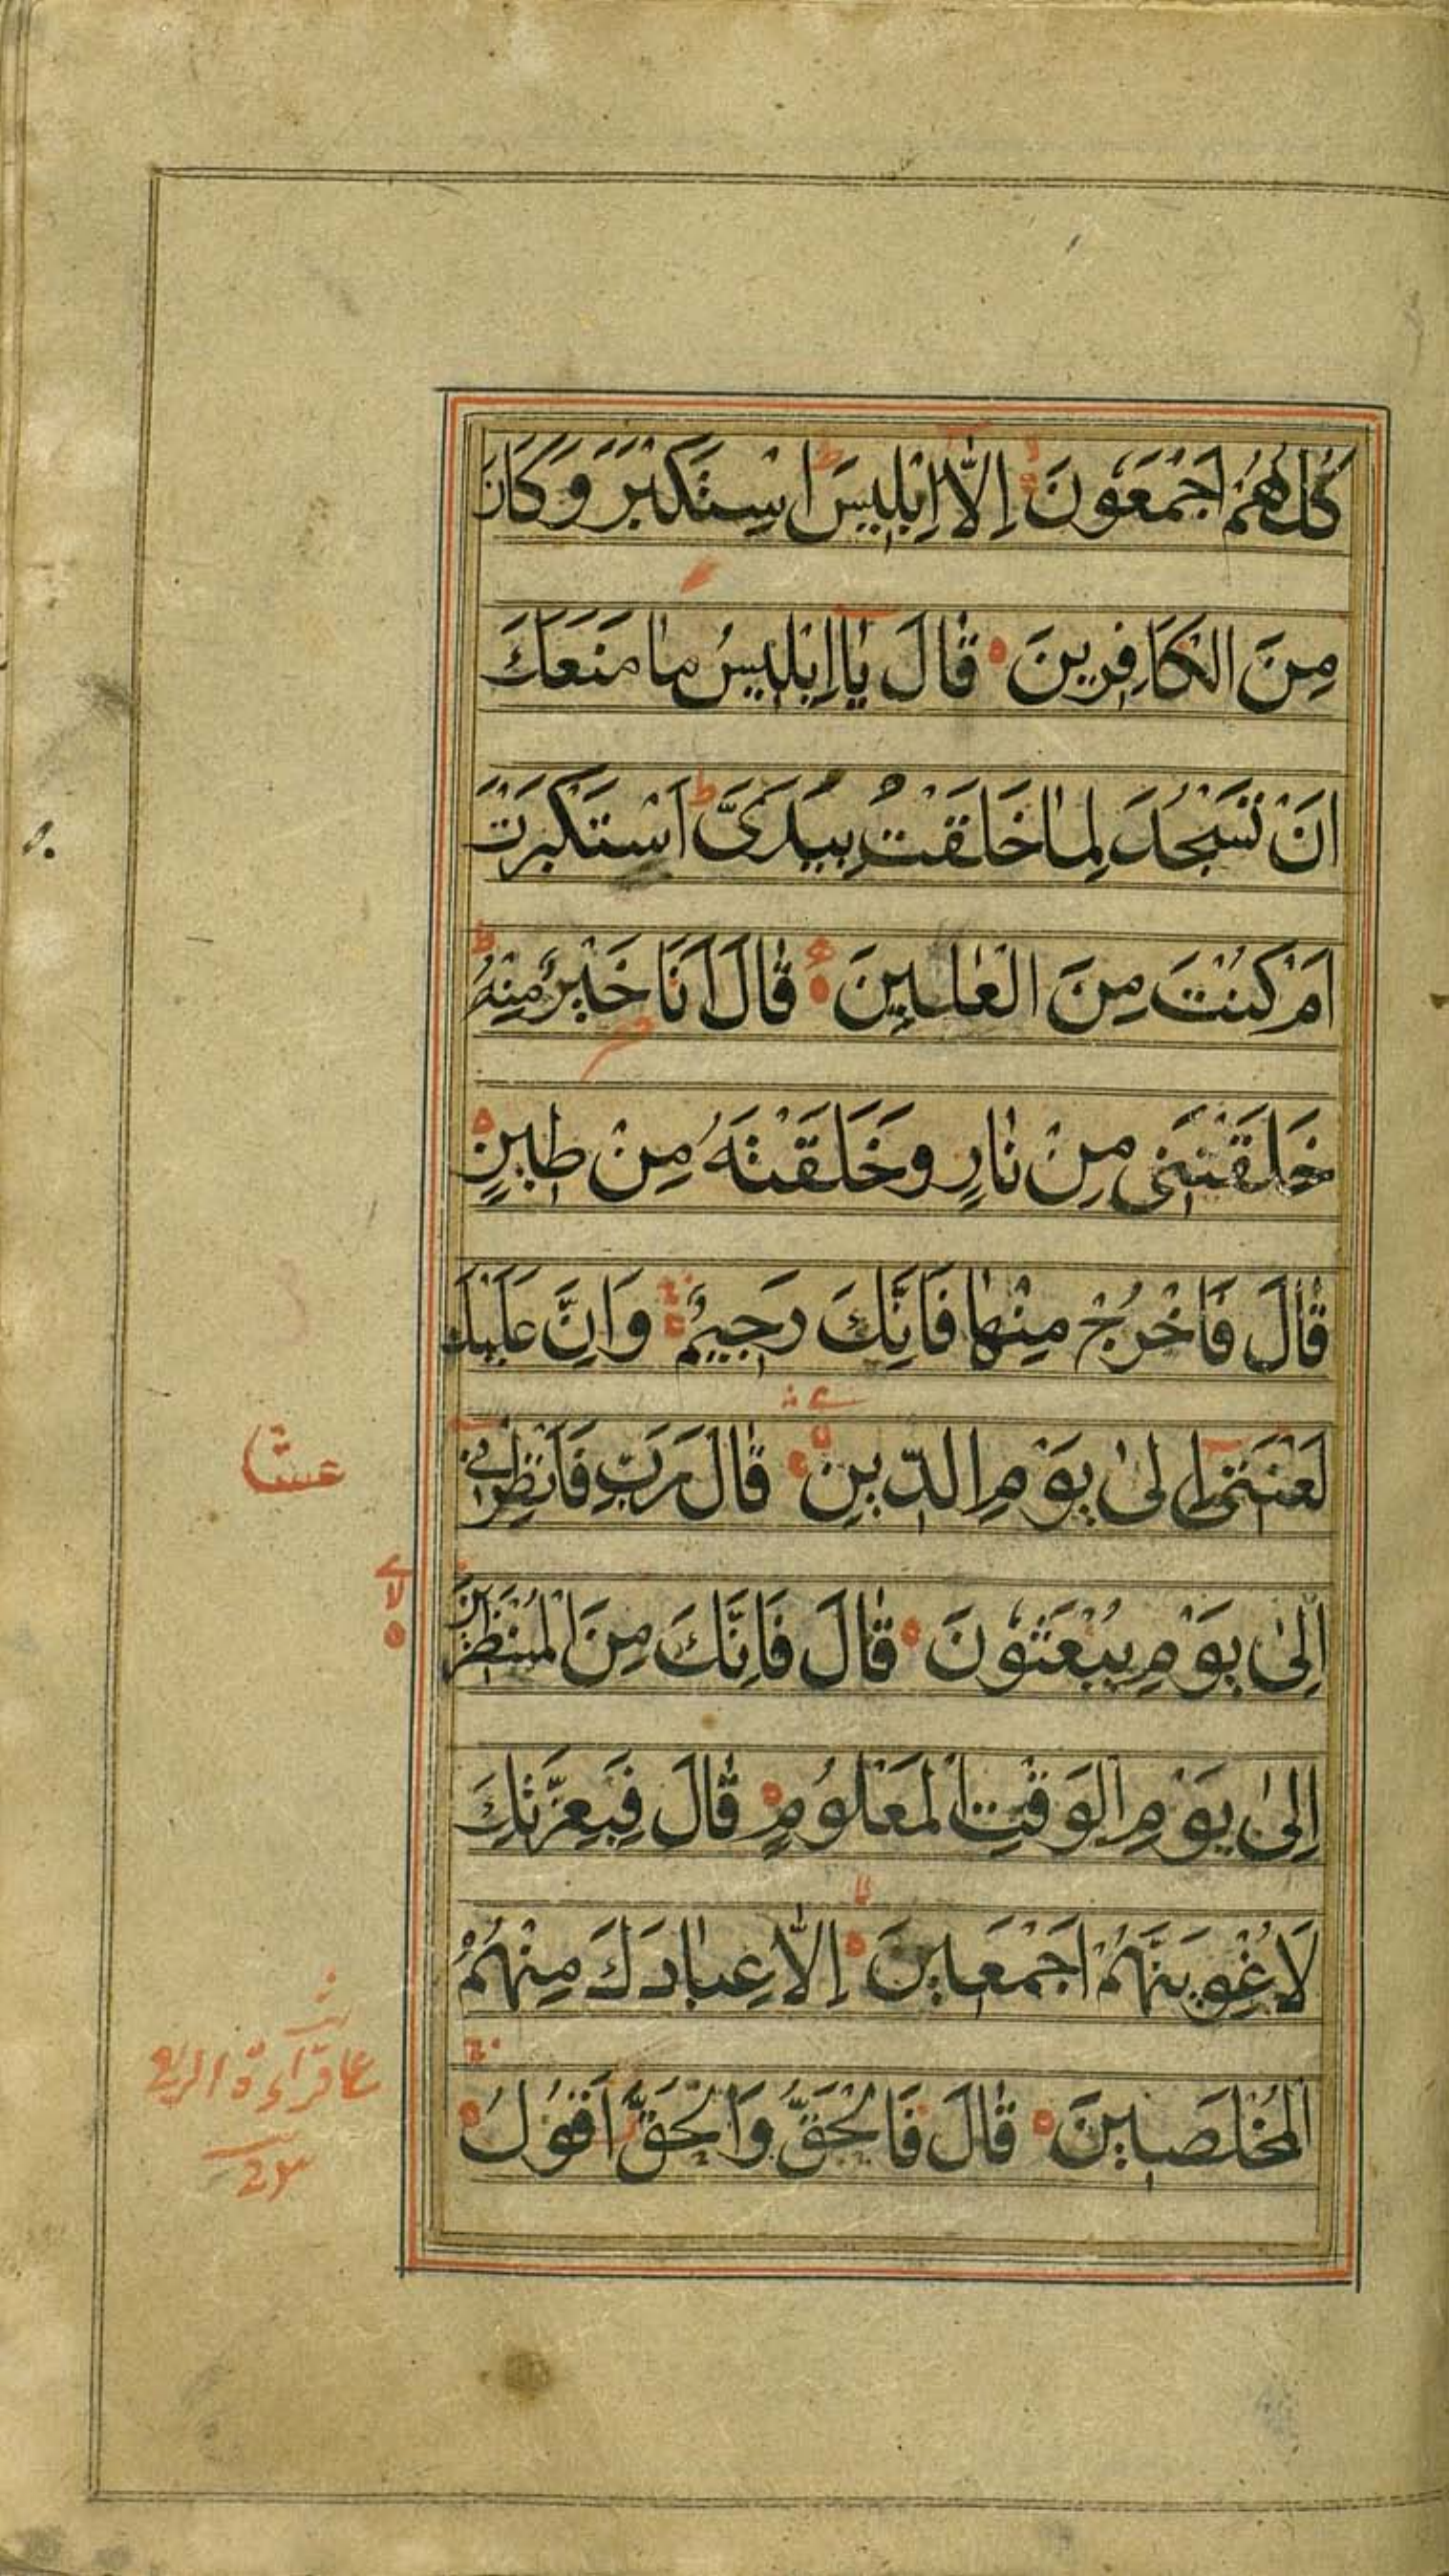 كُلُّهُمْ اَجْمَعُونَ اِلَّا اِبْلِيسَ اسْتَكْبَرَ وَكَانَ
مِنَ الْكَافِرِينَ قَالَ يَا اِبْلِيسُ مَا مَنَعَكَ
اَنْ تَسْجُدَ لِمَا خَلَقْتُ بِيَدَيَّ اَسْتَكْبَرْتَ
اَمْ كُنْتَ مِنَ الْعَالِينَ قَالَ اَنَا خَيْرٌ مِنْهُ
خَلَقْتَنِي مِنْ نَارٍ وَخَلَقْتَهُ مِنْ طِينٍ
قَالَ فَاخْرُجْ مِنْهَا فَاِنَّكَ رَجِيمٌ وَاِنَّ عَلَيْكَ
لَعْنَتِي اِلَىٰ يَوْمِ الدِّينِ قَالَ رَبِّ فَاَنْظِرْنِي
اِلَىٰ يَوْمِ يُبْعَثُونَ قَالَ فَاِنَّكَ مِنَ الْمُنْظَرِينَ
اِلَىٰ يَوْمِ الْوَقْتِ الْمَعْلُومِ قَالَ فَبِعِزَّتِكَ
لَاُغْوِيَنَّهُمْ اَجْمَعِينَ اِلَّا عِبَادَكَ مِنْهُمُ
الْمُخْلَصِينَ قَالَ فَالْحَقُّ وَالْحَقَّ اَقُولُ